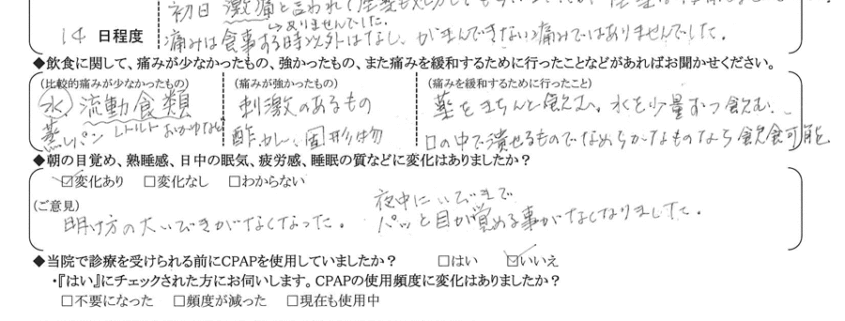 初日 激痛と言われて
ありませんでした。
14 日程度
痛みは食事する時以外はなし、がまんできない痛みではありませんでした。
◆飲食に関して、痛みが少なかったもの、強かったもの、また痛みを緩和するために行ったことなどがあればお聞かせください。
(比較的痛みが少なかったもの) (痛みが強かったもの) (痛みを緩和するために行ったこと)
水、流動食類 刺激のあるもの 薬をきちんと飲む。水を少量ずつ飲む、
蒸しパン レトルトおかゆなど 酢、カレー、固形物 口の中で潰せるものでなめらかなものなら飲食可能
◆朝の目覚め、熟睡感、日中の眠気、疲労感、睡眠の質などに変化はありましたか？
☑変化あり □変化なし □わからない
(ご意見) 夜中にいびきで
明け方の大いびきがなくなった。 パッと目が覚める事がなくなりました。
◆当院で診療を受けられる前にCPAPを使用していましたか？ □はい ☑いいえ
・『はい』にチェックされた方にお伺いします。CPAPの使用頻度に変化はありましたか？
□不要になった □頻度が減った □現在も使用中